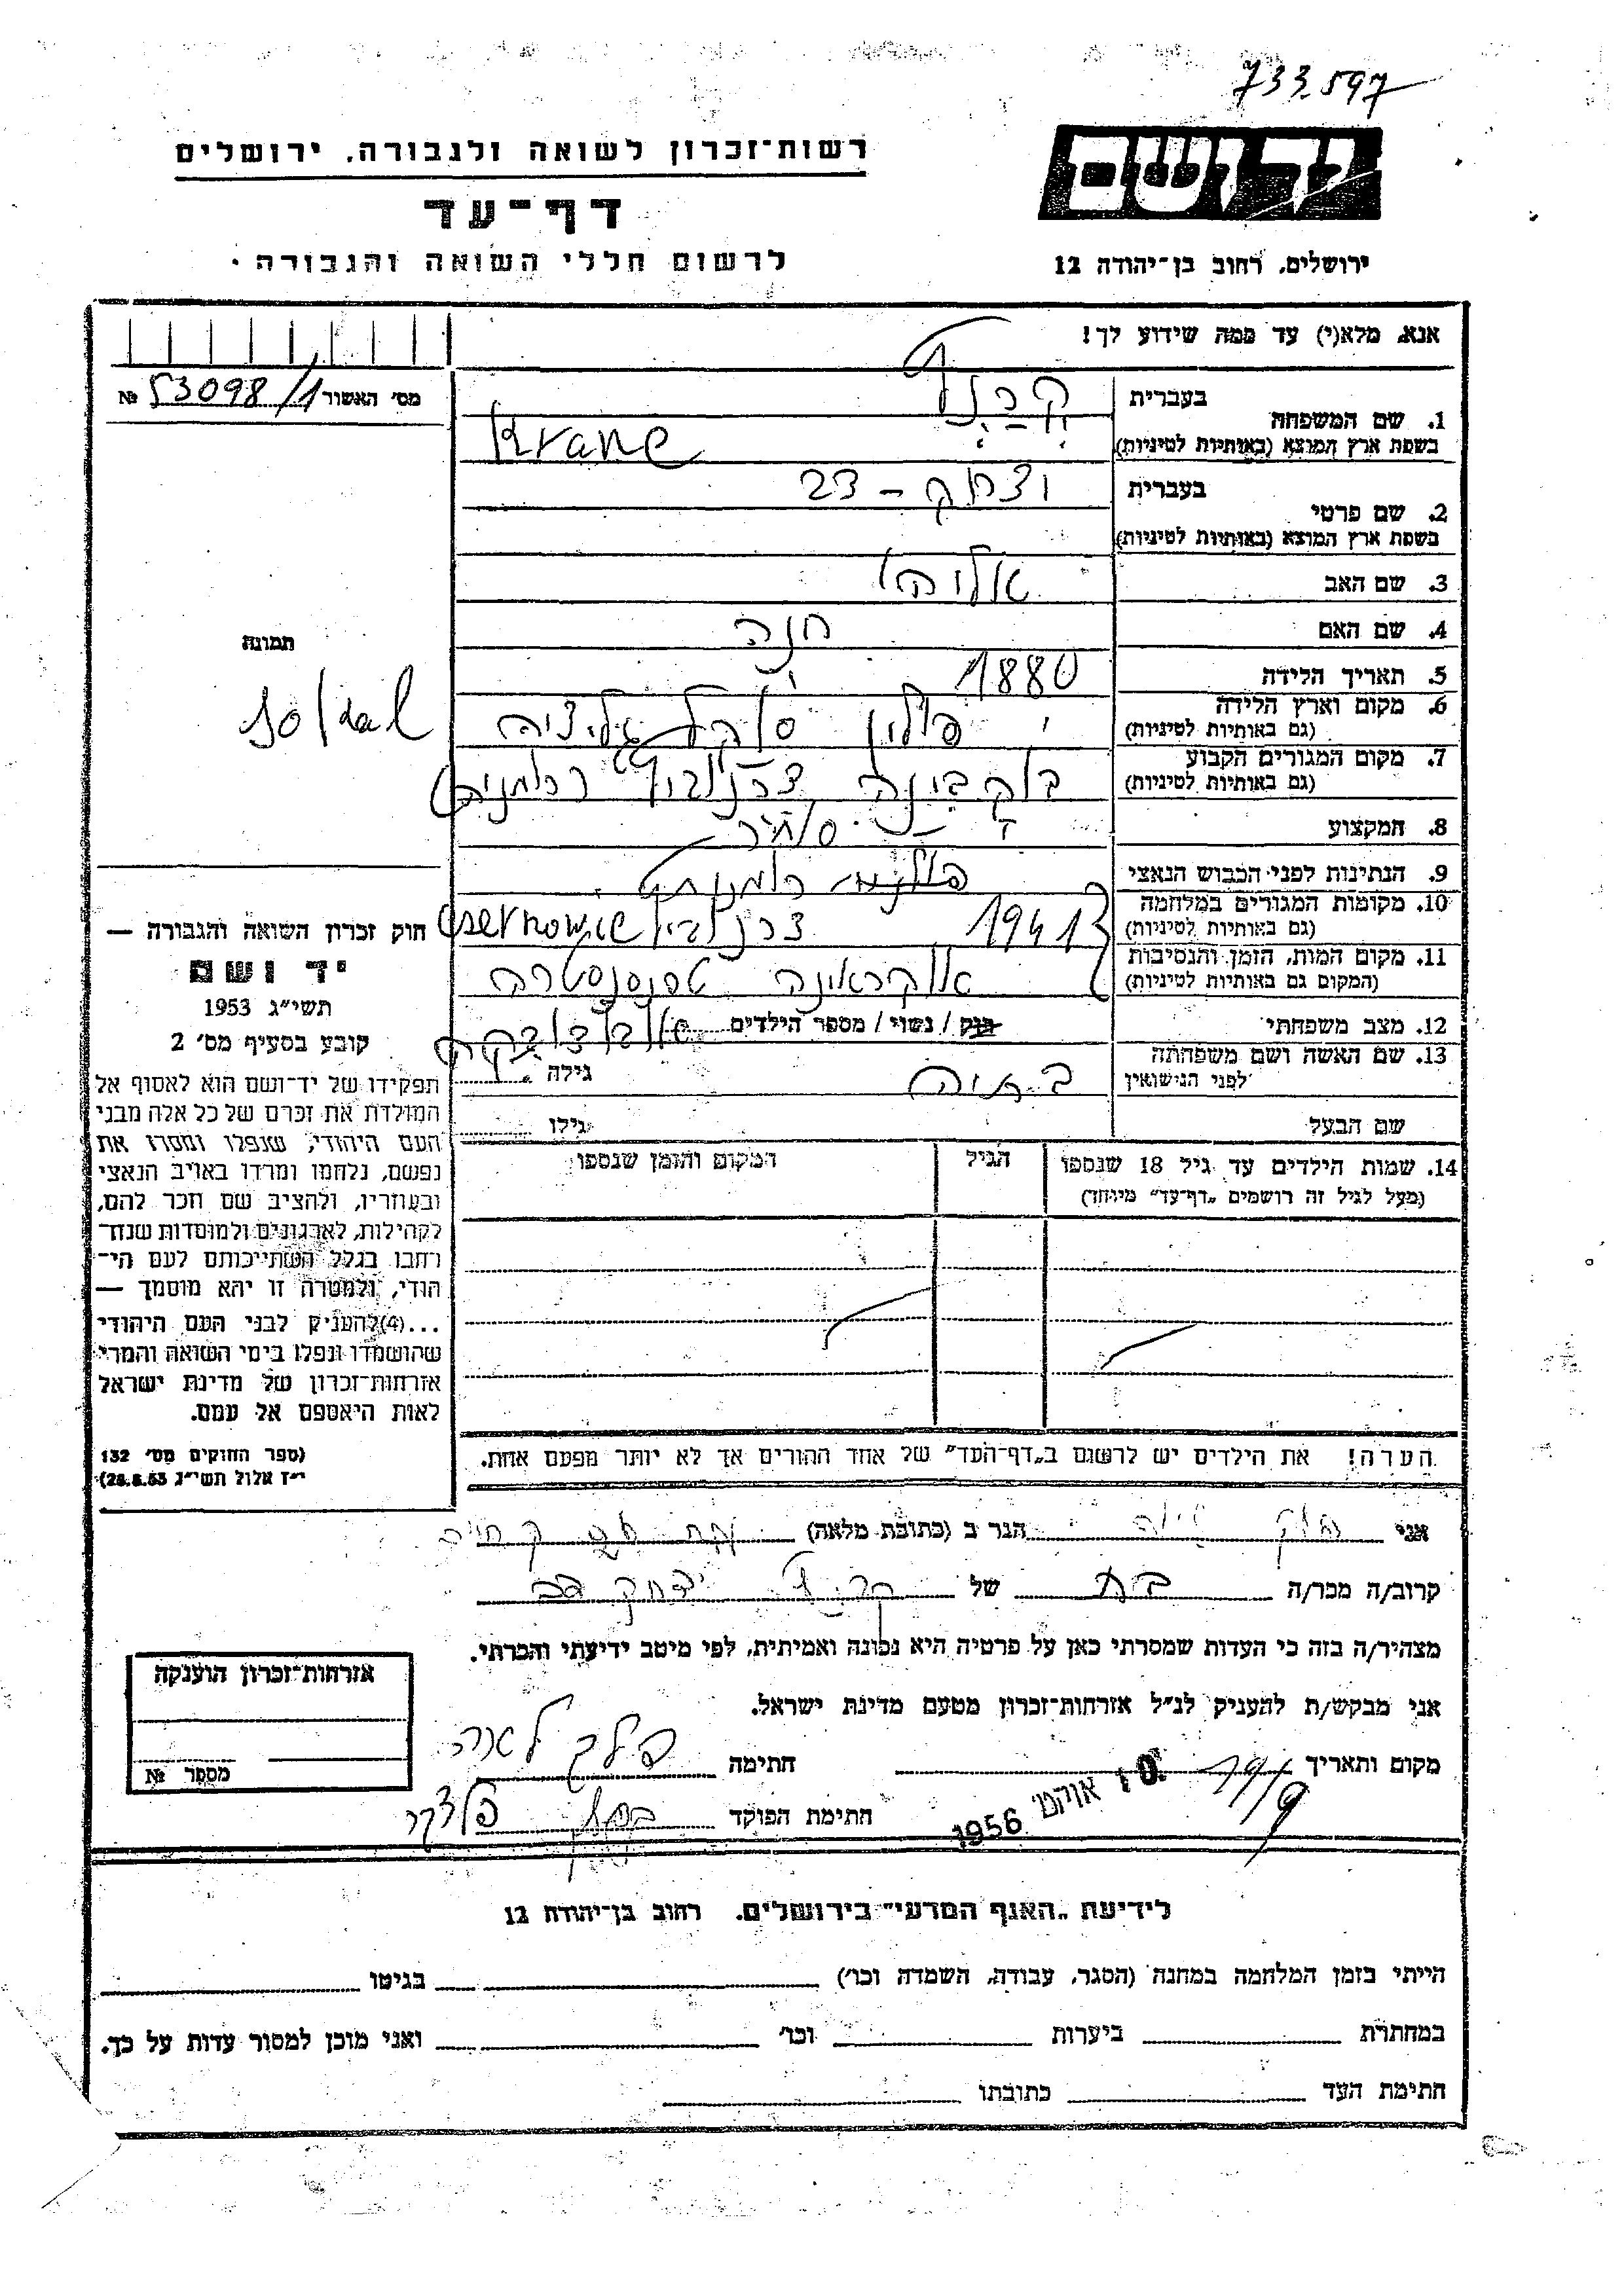 733597
רשות־זכרון לשואה ולגבורה, ירושלים
יד ושם
דף־עד
לרשום חללי השואה והגבורה
ירושלים, רחוב בן־יהודה 12
אנא, מלא(י) עד כמה שידוע לך!
מס׳ האשור 53098/1 №
1. שם המשפחה
בעברית
בשפת ארץ המוצא (באותיות לטיניות) Krane
2. שם פרטי
בעברית יצחק – דב
בשפת ארץ המוצא (באותיות לטיניות)
3. שם האב אליהו
4. שם האם חנה
5. תאריך הלידה 1880
6. מקום וארץ הלידה פולין גליציה
(גם באותיות לטיניות)
7. מקום המגורים הקבוע בוקבינה צרנוביץ רומניה
(גם באותיות לטיניות)
8. המקצוע סוחר
9. הנתינות לפני הכבוש הנאצי רומנית
10. מקומות המגורים במלחמה 1941 צרנוביץ
(גם באותיות לטיניות)
11. מקום המות, הזמן והנסיבות אוקראינה טרנסנסטריה
(המקום גם באותיות לטיניות)
12. מצב משפחתי רוק / נשוי / מספר הילדים
13. שם האשה ושם משפחתה
לפני הנישואין
גילה
שם הבעל גילו
14. שמות הילדים עד גיל 18 שנספו הגיל המקום והזמן שנספו
(מעל לגיל זה רושמים „דף־עד״ מיוחד)
הערה! את הילדים יש לרשום ב„דף־העד״ של אחד ההורים אך לא יותר מפעם אחת.
תמונה
חוק זכרון השואה והגבורה —
יד ושם
תשי״ג 1953
קובע בסעיף מס׳ 2
תפקידו של יד־ושם הוא לאסוף אל
המולדת את זכרם של כל אלה מבני
העם היהודי, שנפלו ומסרו את
נפשם, נלחמו ומרדו באויב הנאצי
ובעוזריו, ולהציב שם וזכר להם,
לקהילות, לארגונים ולמוסדות שנח־
רחבו בגלל השתייכותם לעם הי־
הודי, ולמטרה זו יהא מוסמך —
...(4)להעניק לבני העם היהודי
שהושמדו ונפלו בימי השואה והמרי
אזרחות־זכרון של מדינת ישראל
לאות היאספם אל עמם.
(ספר החוקים מס׳ 132
י״ז אלול תשי״ג 28.8.53)
אני הגר ב (כתובת מלאה)
קרוב/ה מכר/ה בת של יצחק דב
מצהיר/ה בזה כי העדות שמסרתי כאן על פרטיה היא נכונה ואמיתית, לפי מיטב ידיעתי והכרתי.
אני מבקש/ת להעניק לנ״ל אזרחות־זכרון מטעם מדינת ישראל.
מקום ותאריך 19/9 10 אוקט׳ 1956 חתימה
חתימת הפוקד
אזרחות־זכרון הוענקה
מספר №
לידיעת „האגף המדעי״ בירושלים, רחוב בן־יהודה 12
הייתי בזמן המלחמה במחנה (הסגר, עבודה, השמדה וכו׳) בגיטו
במחתרת ביערות וכו׳ ואני מוכן למסור עדות על כך.
חתימת העד כתובתו